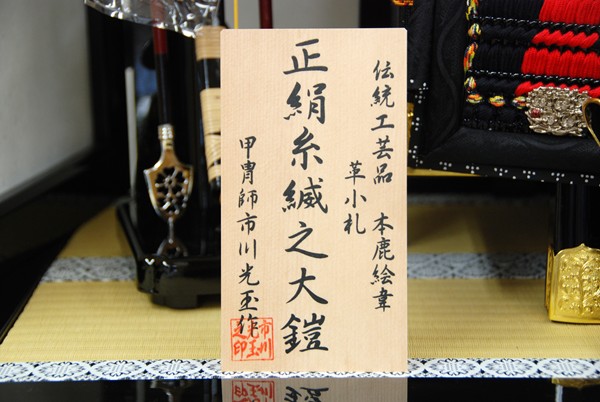 伝統工芸品 本鹿絵韋
革小札
正絹糸縅之大鎧
甲冑師市川光玉作
市川
光玉
之印